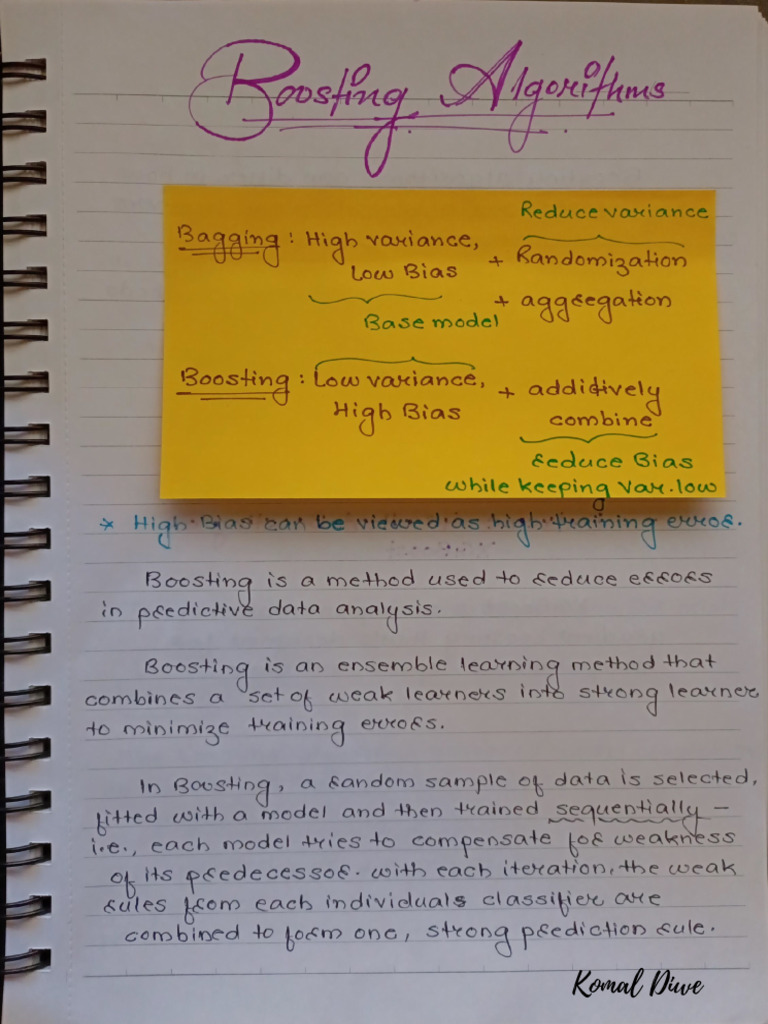 Boosting Algorithms
Reduce variance
Bagging : High variance, + Randomization
Low Bias + aggregation
Base model
Boosting : Low variance, + additively
High Bias combine
reduce Bias
while keeping var. low
* High Bias can be viewed as high training error.
Boosting is a method used to reduce errors
in predictive data analysis.
Boosting is an ensemble learning method that
combines a set of weak learners into strong learner
to minimize training errors.
In Boosting, a random sample of data is selected,
fitted with a model and then trained sequentially –
i.e., each model tries to compensate for weakness
of its predecessor. with each iteration, the weak
rules from each individuals classifier are
combined to form one, strong prediction rule.
Komal Diwe